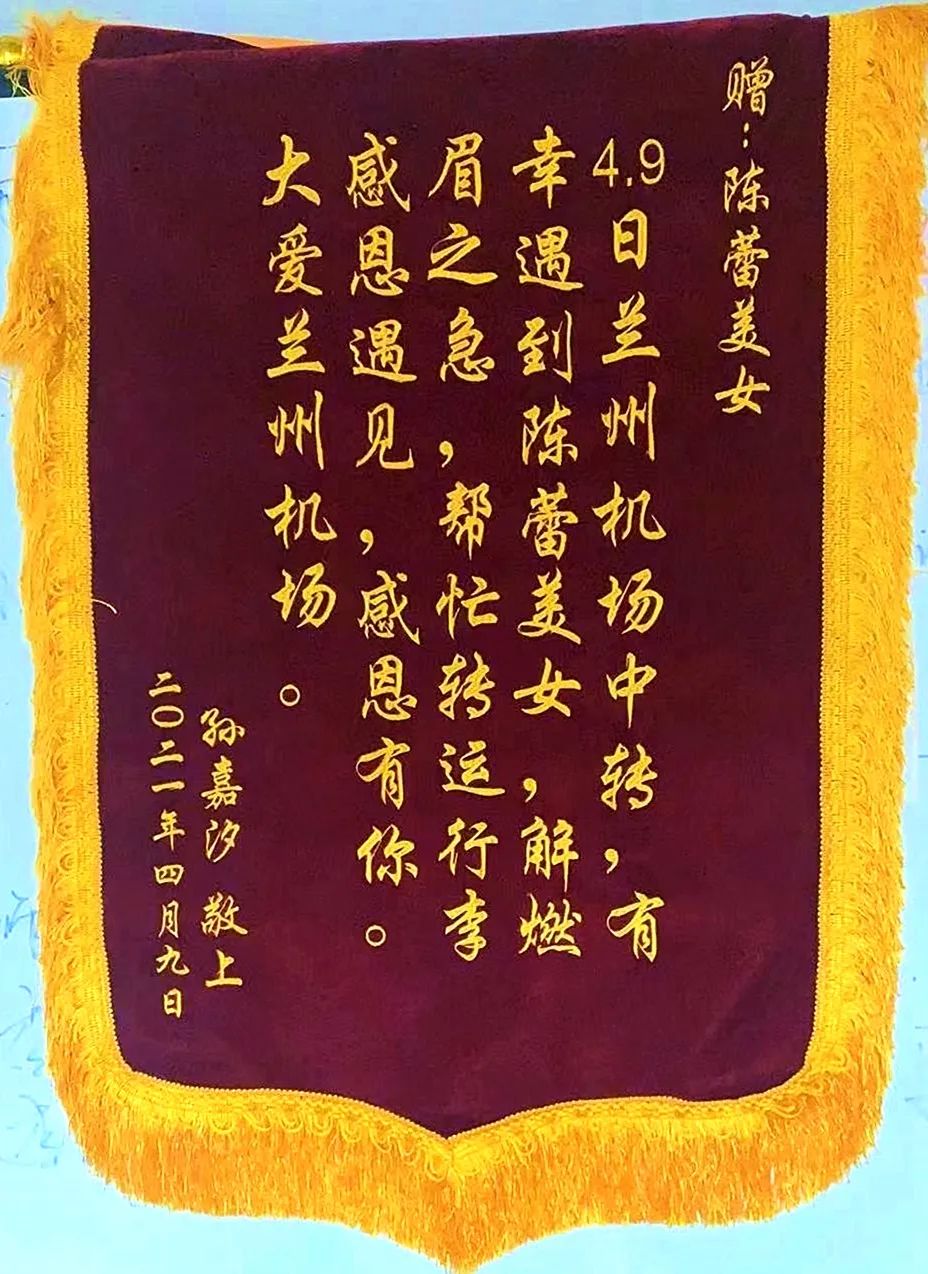 赠：陈蕾美女
4.9日兰州机场中转，有
幸遇到陈蕾美女，解燃
眉之急，帮忙转运行李
感恩遇见，感恩有你。
大爱兰州机场。
孙嘉汐 敬上
二〇二一年四月九日